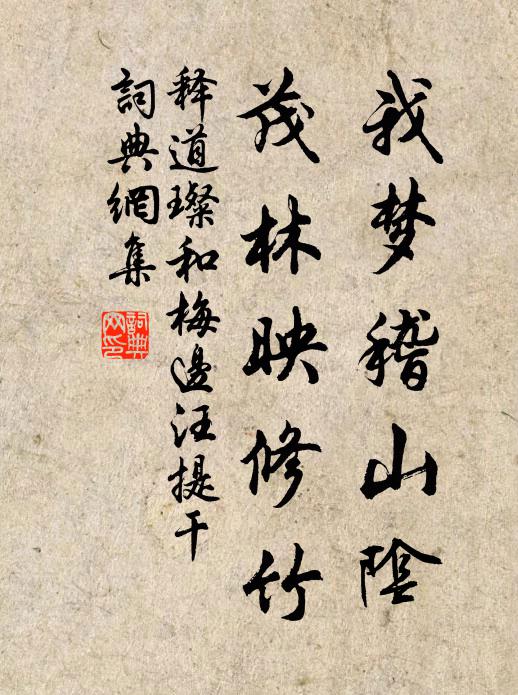 我梦稽山陰
茂林映修竹
释道璨和梅邊汪提干
詞典網集
詞典网印